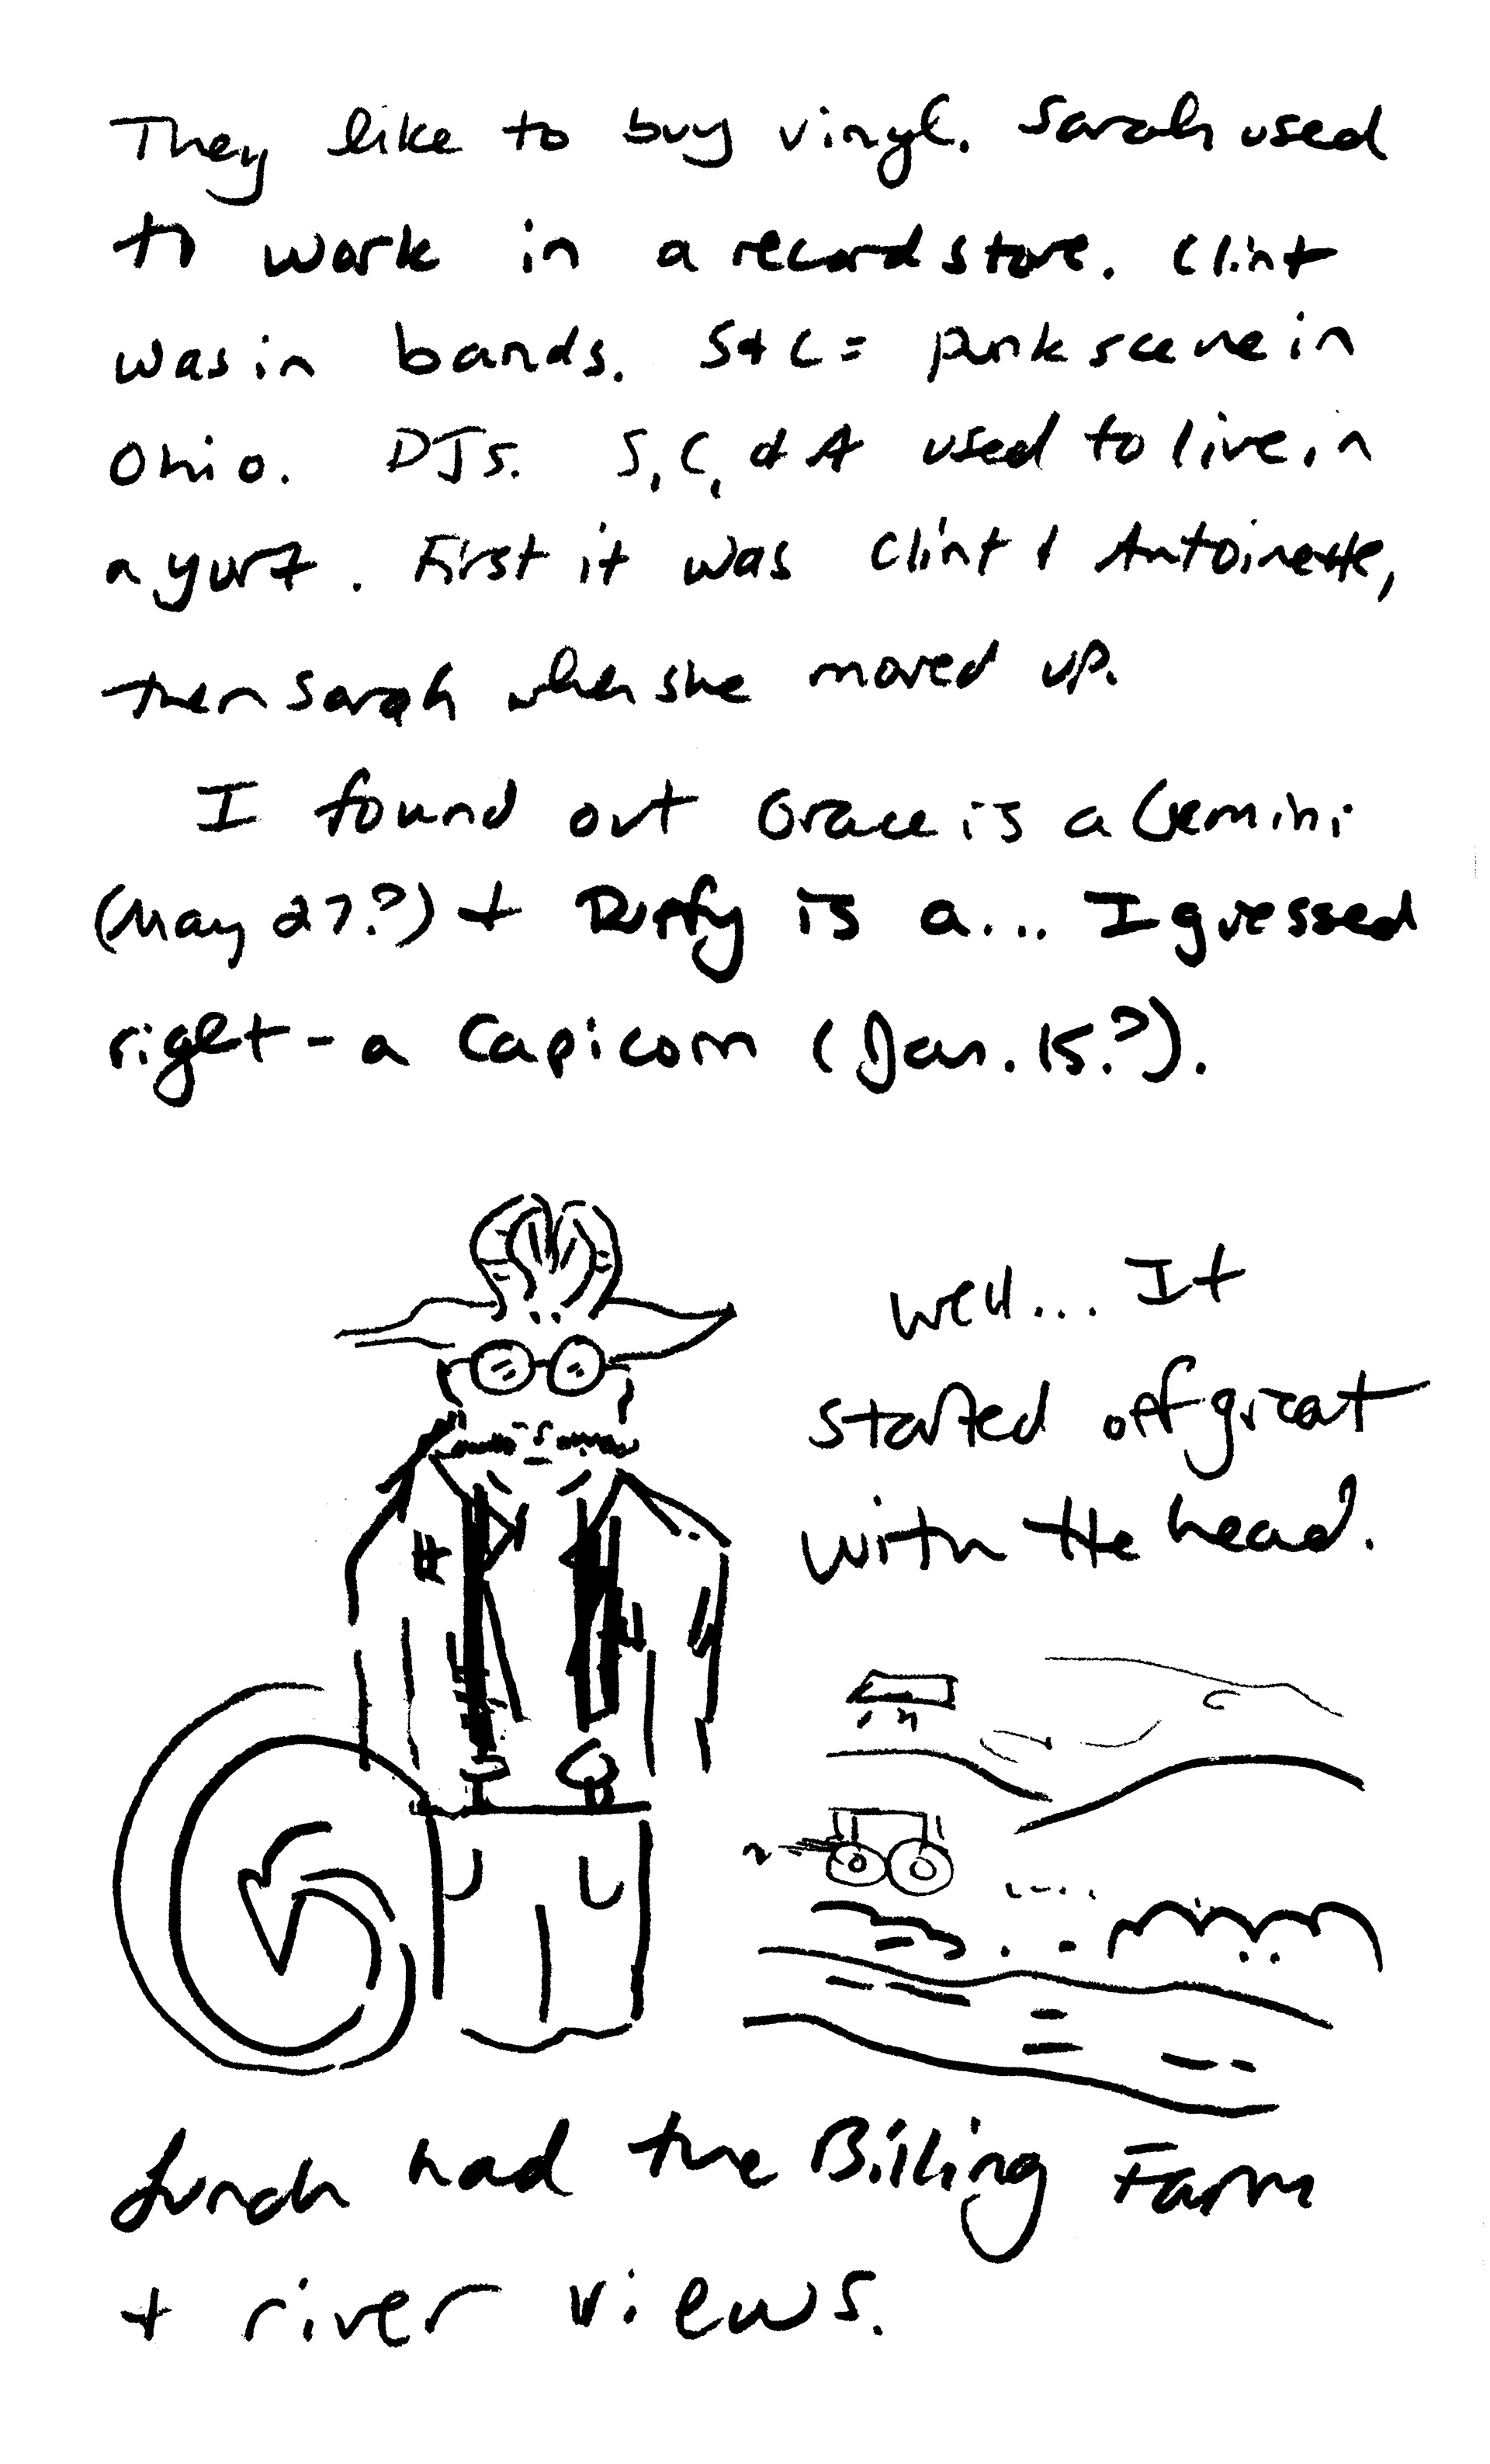 They like to buy vinyl. Sarah used
to work in a record store. Clint
was in bands. S + C = punk scene in
Ohio. DJs. S, C, & A used to live in
a yurt. First it was Clint & Antoinette,
then Sarah when she moved up.
I found out Grace is a Gemini
(May 27?) + Rusty is a... I guessed
right - a Capicorn (Jan. 15?).
Well... It
started off great
with the head.
Lunch had the Billing Farm
+ river views.